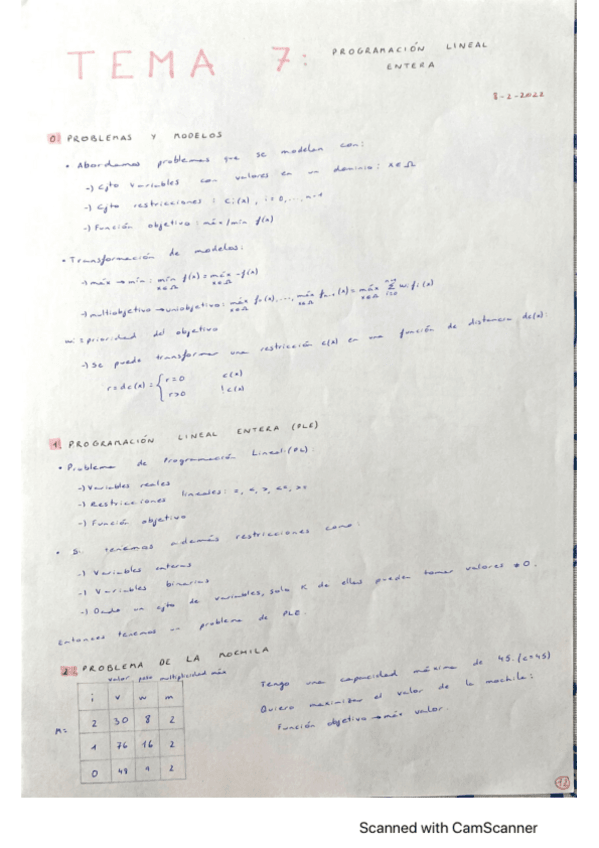 TEMA 7: PROGRAMACIÓN LINEAL
ENTERA
8-2-2022
0. PROBLEMAS Y MODELOS
• Abordamos problemas que se modelan con:
-) Cjto variables con valores en un dominio: x∈Ω
-) Cjto restricciones: Ci(x), i=0,...,n-1
-) Función objetivo: máx/mín f(x)
• Transformación de modelos:
-) máx → mín: mín x∈Ω f(x) = máx x∈Ω -f(x)
-) multiobjetivo → uniobjetivo: máx x∈Ω f0(x),..., máx x∈Ω fn-1(x) = máx x∈Ω Σ i=0 n-1 wi fi(x)
wi = prioridad del objetivo
-) Se puede transformar una restricción c(x) en una función de distancia dc(x):
r = dc(x) = { r=0 c(x)
r>0 !c(x)
1. PROGRAMACIÓN LINEAL ENTERA (PLE)
• Problema de Programación Lineal (PL):
-) Variables reales
-) Restricciones lineales: =, <, >, <=, >=
-) Función objetivo
• Si tenemos además restricciones como:
-) Variables enteras
-) Variables binarias
-) Dado un cjto de variables, solo K de ellas pueden tomar valores ≠0.
Entonces tenemos un problema de PLE.
2. PROBLEMA DE LA MOCHILA
valor peso multiplicidad máx
i v w m
2 30 8 2
1 76 16 2
0 49 1 2
Tengo una capacidad máxima de 45. (c=45)
Quiero maximizar el valor de la mochila:
Función objetivo → máx valor.
12
Scanned with CamScanner